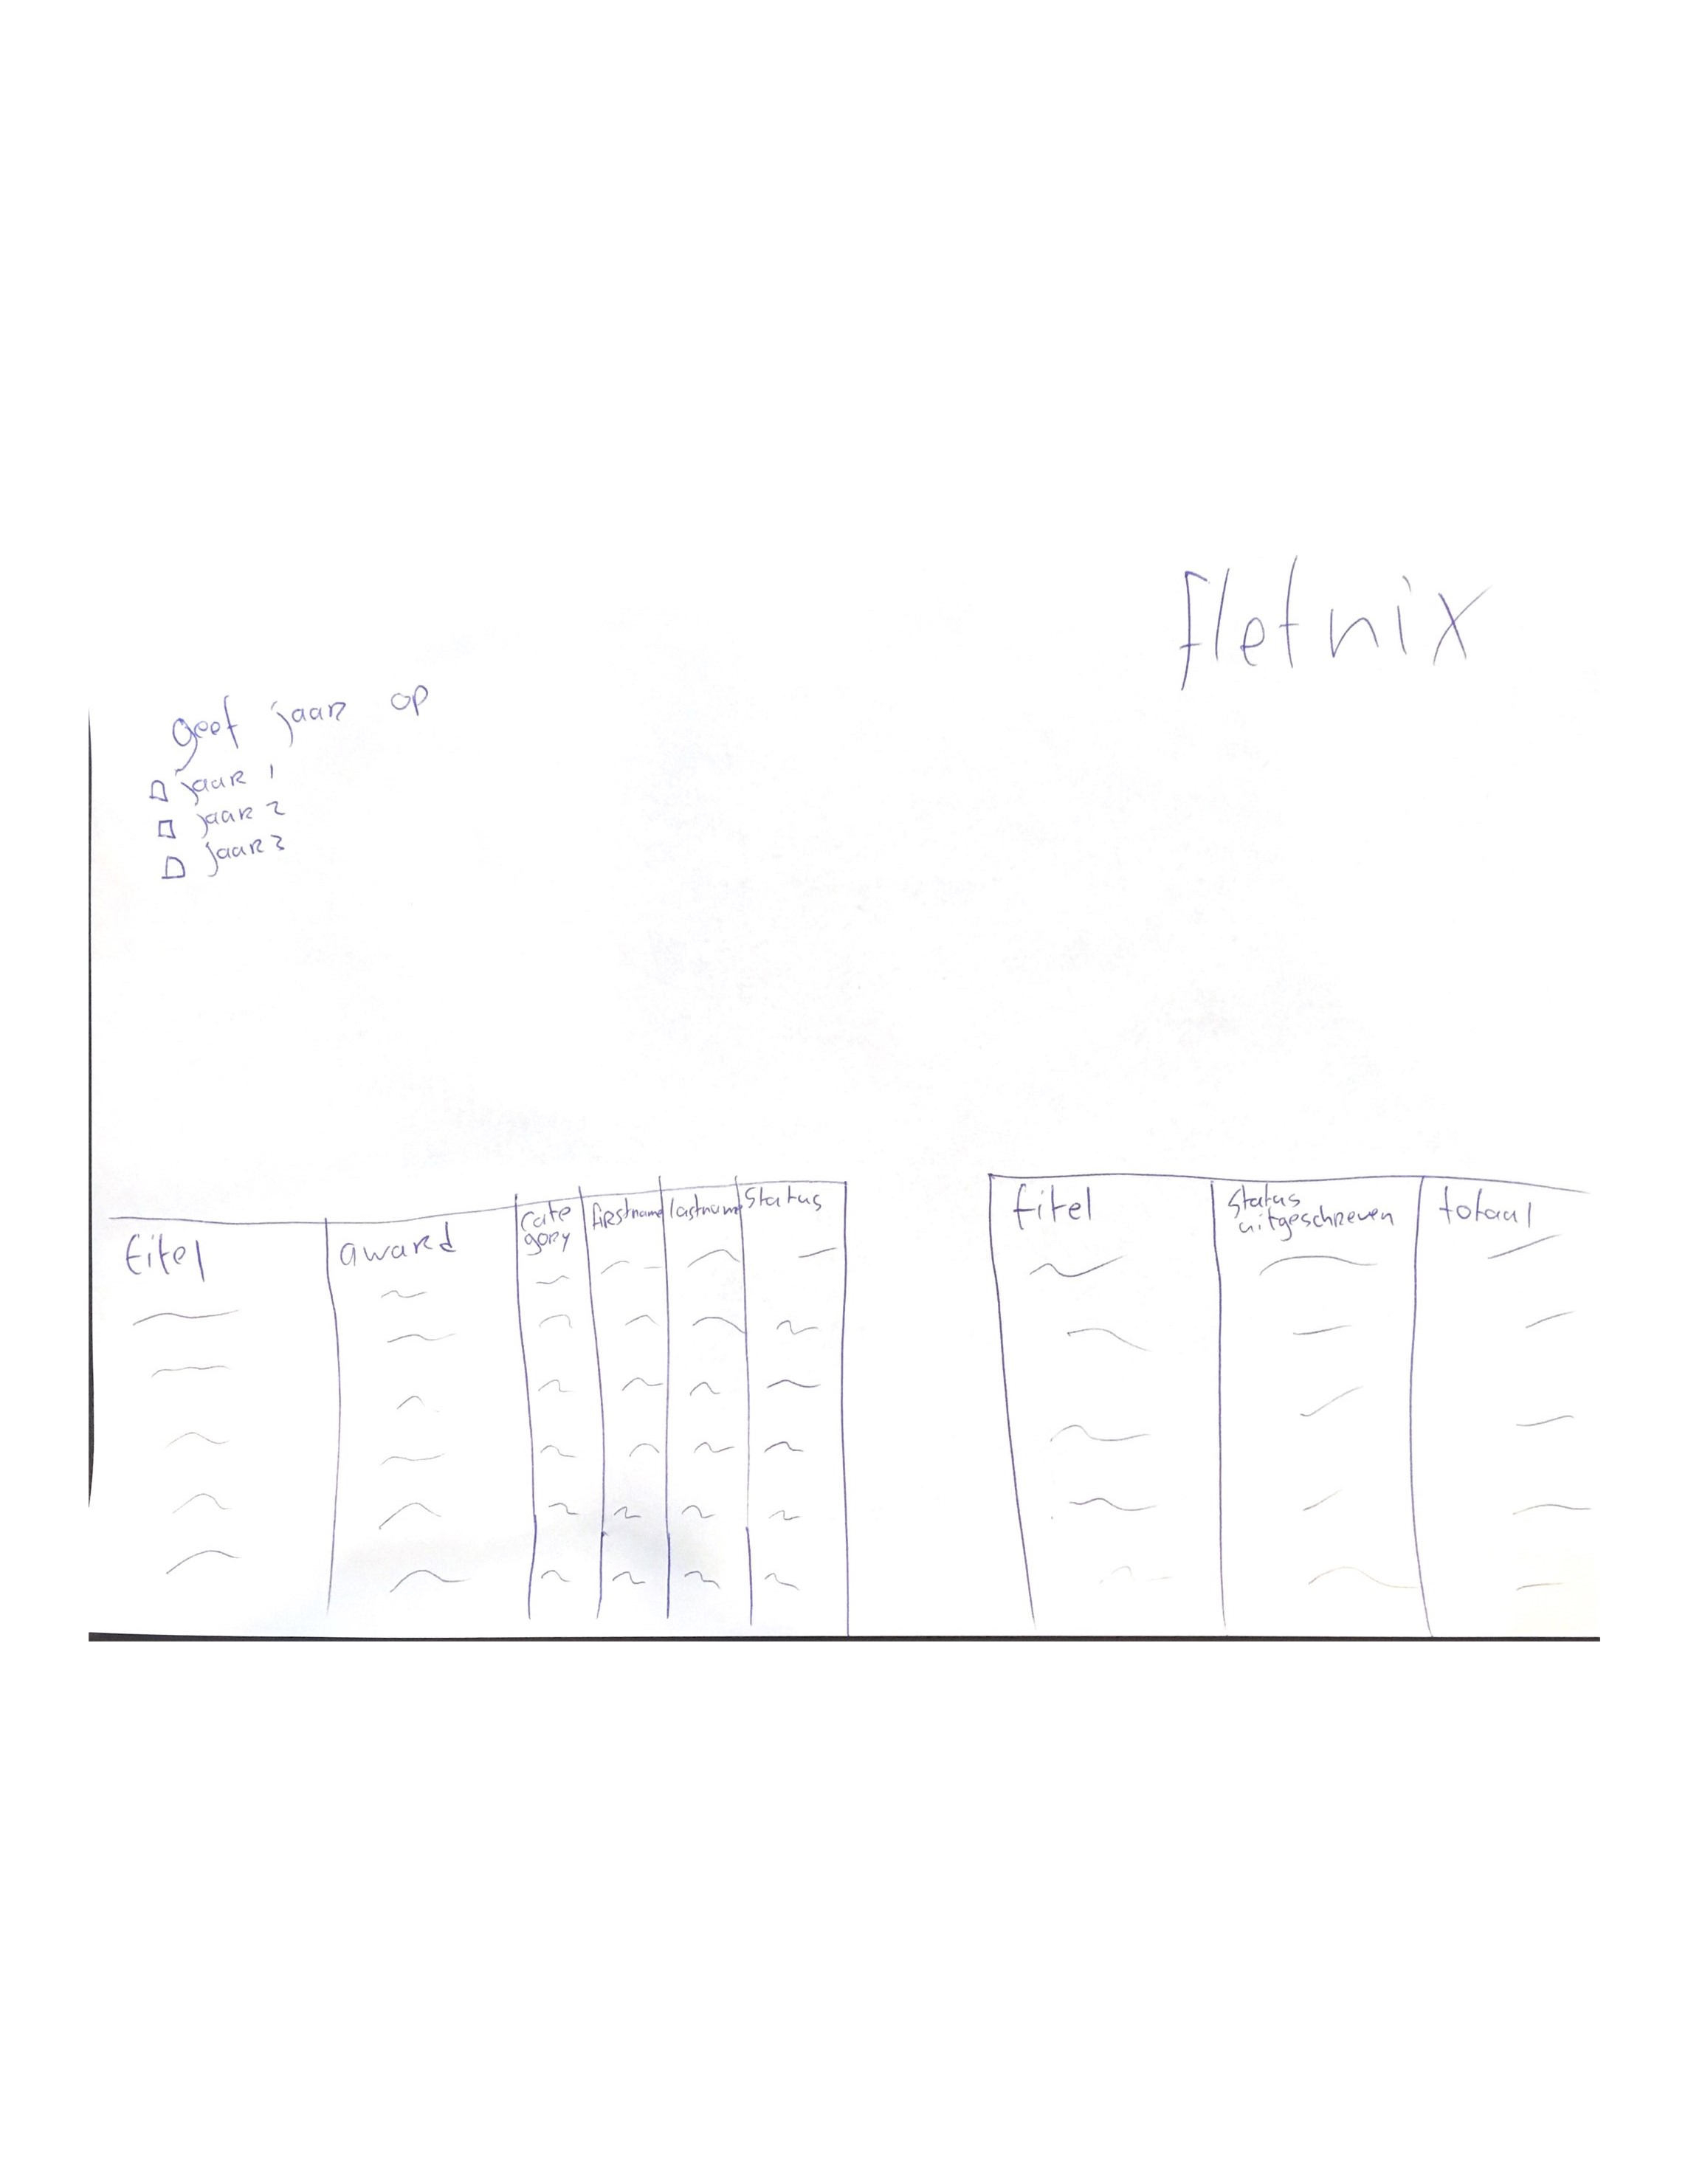 fletnix
geef jaar op
jaar 1
jaar 2
jaar 3
titel
award
cate
gory
firstname
lastname
status
titel
status
uitgeschreven
totaal